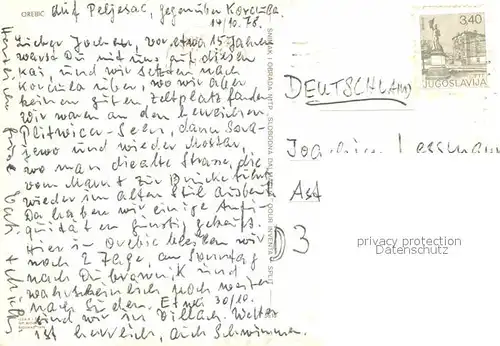 OREBIC
auf Peljesac, gegenüber Korcula.
14/10.78.
Lieber Jochen, vor etwa 15 Jahren
warst Du mit uns auf diesem
Kai, und wir setzten nach
Korcula über, wo wir aber
keinen guten Zeltplatz fanden
Wir waren an den herrlichen
Plitwicer-Seen, dann Sara-
jewo und wieder Mostar,
wo man die alte Strasse, die
vom Markt zur Brücke führt
wieder im alten Stil ausbaut
Da haben wir einige Anti-
quitäten günstig gekauft.
Hier in Orebic bleiben wir
noch 2 Tage, am Sonntag
nach Dubrownik und
wahrscheinlich noch weiter
nach Süden. Etwa 30/10.
sind wir in Villach. Wetter
ist herrlich, auch Schwimmen.
Herzliche Grüße
3,40
JUGOSLAVIJA
DEUTSCHLAND
Joachim Lessmann
Ast
D 3
privacy protection
Datenschutz